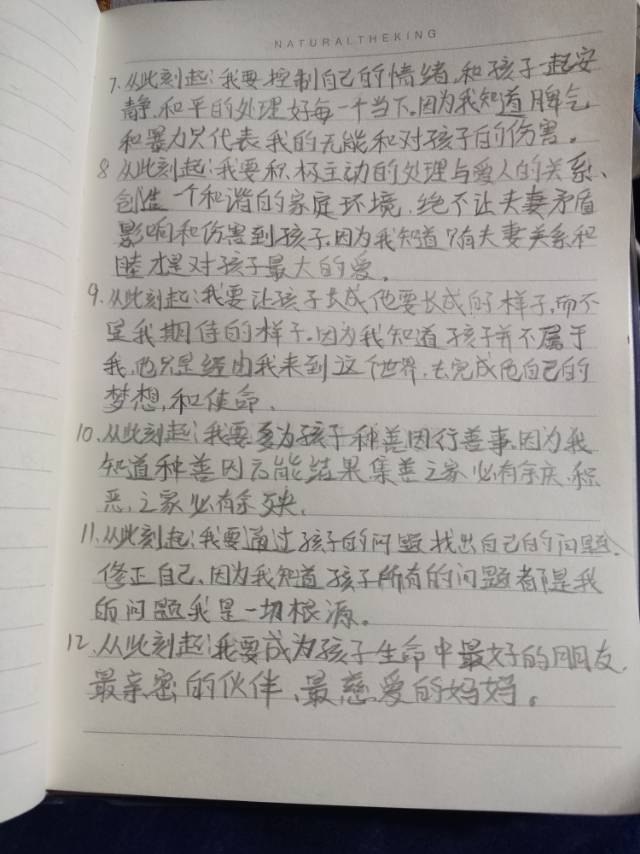 NATURALTHEKING
7.从此刻起:我要控制自己的情绪,和孩子一起安
静,和平的处理好每一个当下。因为我知道脾气
和暴力只代表我的无能和对孩子的伤害。
8.从此刻起:我要积极主动的处理与爱人的关系、
创造一个和谐的家庭环境,绝不让夫妻矛盾
影响和伤害到孩子。因为我知道只有夫妻关系和
睦才是对孩子最大的爱。
9.从此刻起:我要让孩子长成他要长成的样子,而不
是我期待的样子。因为我知道孩子并不属于
我,他只是经由我来到这个世界,去完成他自己的
梦想,和使命.
10.从此刻起:我要多为孩子种善因行善事,因为我
知道种善因方能结果集善之家必有余庆,积
恶,之家必有余殃.
11.从此刻起:我要通过孩子的问题找出自己的问题、
修正自己、因为我知道孩子所有的问题都是我
的问题我是一切根源。
12.从此刻起:我要成为孩子生命中最好的朋友,
最亲密的伙伴、最慈爱的妈妈。